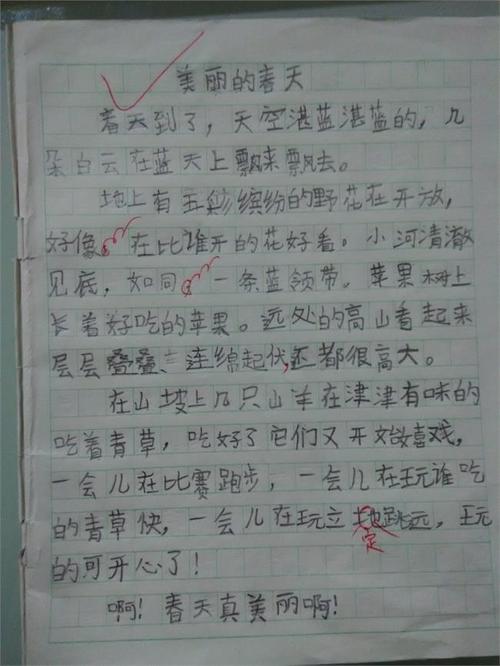 美丽的春天
春天到了，天空湛蓝湛蓝的，几
朵白云在蓝天上飘来飘去。
地上有五彩缤纷的野花在开放，
好像在比谁开的花好看。小河清澈
见底，如同一条蓝领带。苹果树上
长着好吃的苹果。远处的高山看起来
层层叠叠、连绵起伏，还都很高大。
在山坡上几只山羊在津津有味的
吃着青草，吃好了它们又开始嬉戏，
一会儿在比赛跑步，一会儿在玩谁吃
的青草快，一会儿在玩立地跳远，玩
定
的可开心了！
啊！春天真美丽啊！